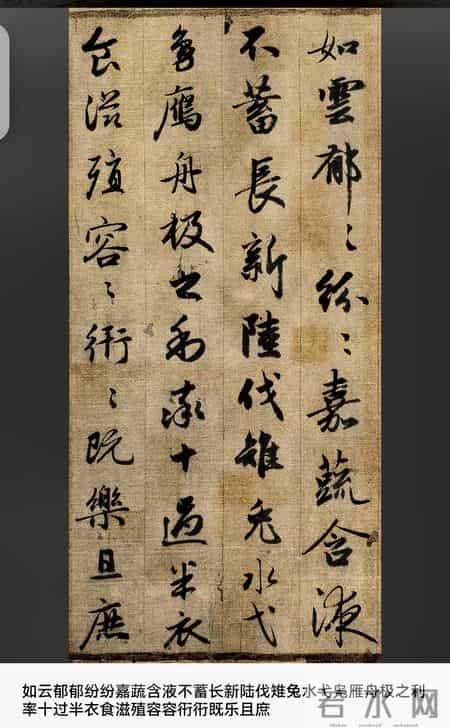 如雲郁〻紛〻嘉蔬含液
不蓄長新陸伐雉兔水弋
鳧鴈舟极之利率十過半衣
食滋殖容〻衎〻既樂且庶
如云郁郁纷纷嘉蔬含液不蓄长新陆伐雉兔水弋凫雁舟极之利
率十过半衣食滋殖容容衎衎既乐且庶
若水网